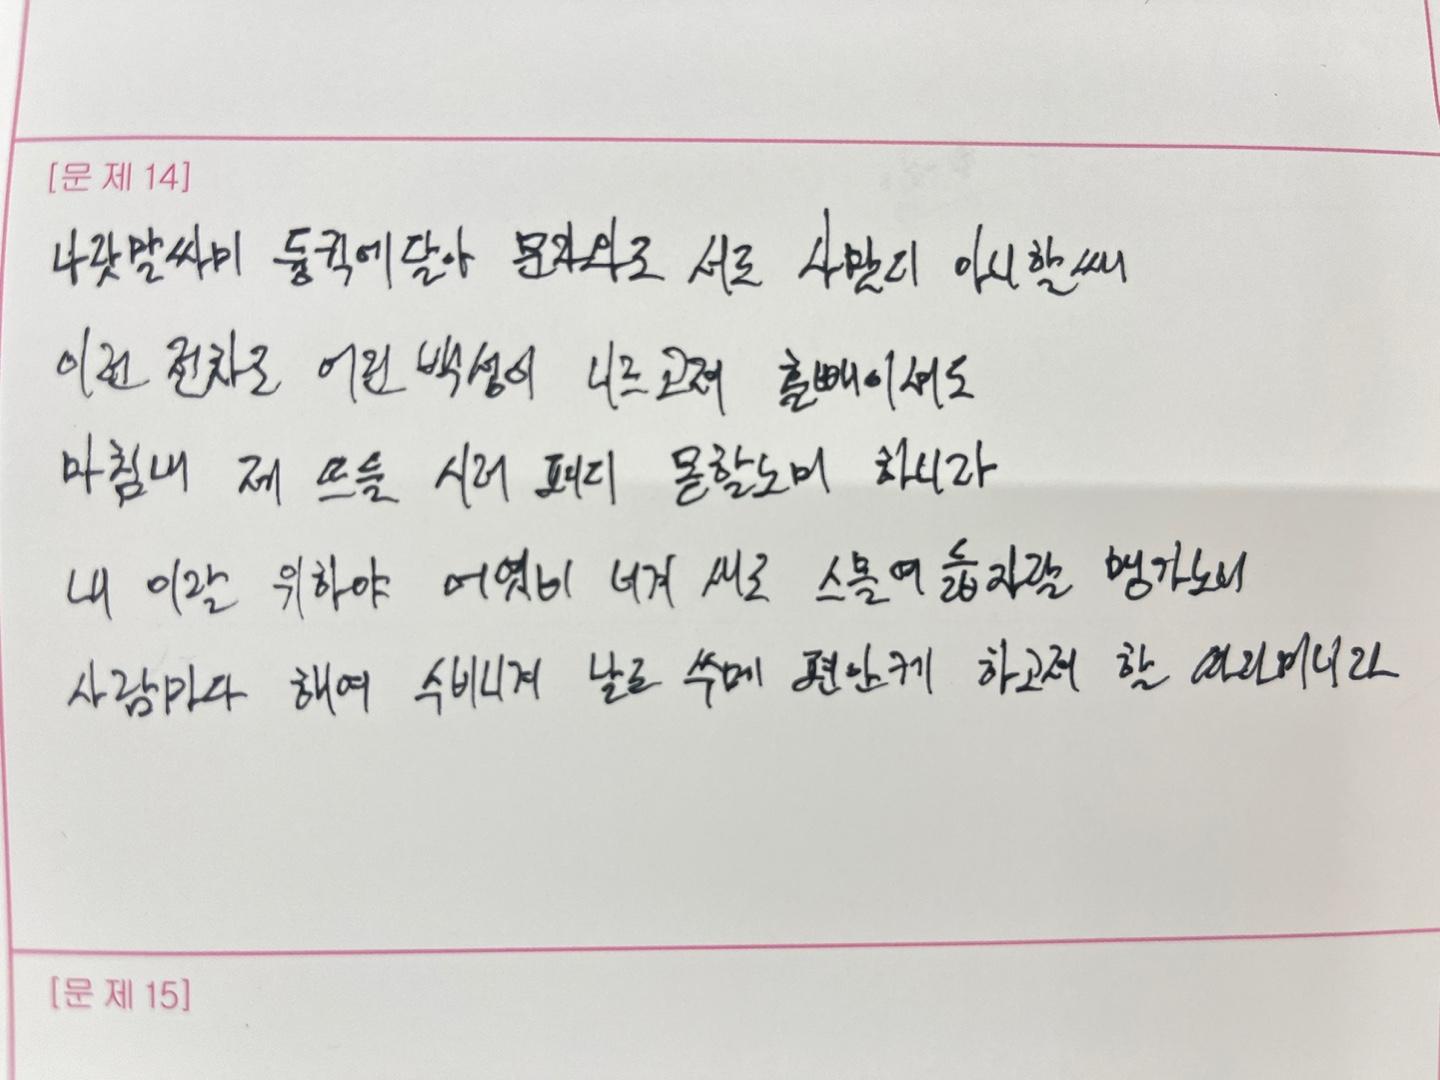 [문제 14]
나랏말싸미 듕귁에달아 문자와로 서로 사맏디 아니할쎄
이런 전차로 어린 백성이 니르고져 홀빼이셔도
마침내 제 뜨들 시러 펴디 몯할노미 하니라
내 이랄 위하야 어엿비 너겨 새로 스믈여듧자랄 맹가노니
사람마다 해여 수비니겨 날로 쑤메 편안케 하고져 할 따라미니라
[문제 15]